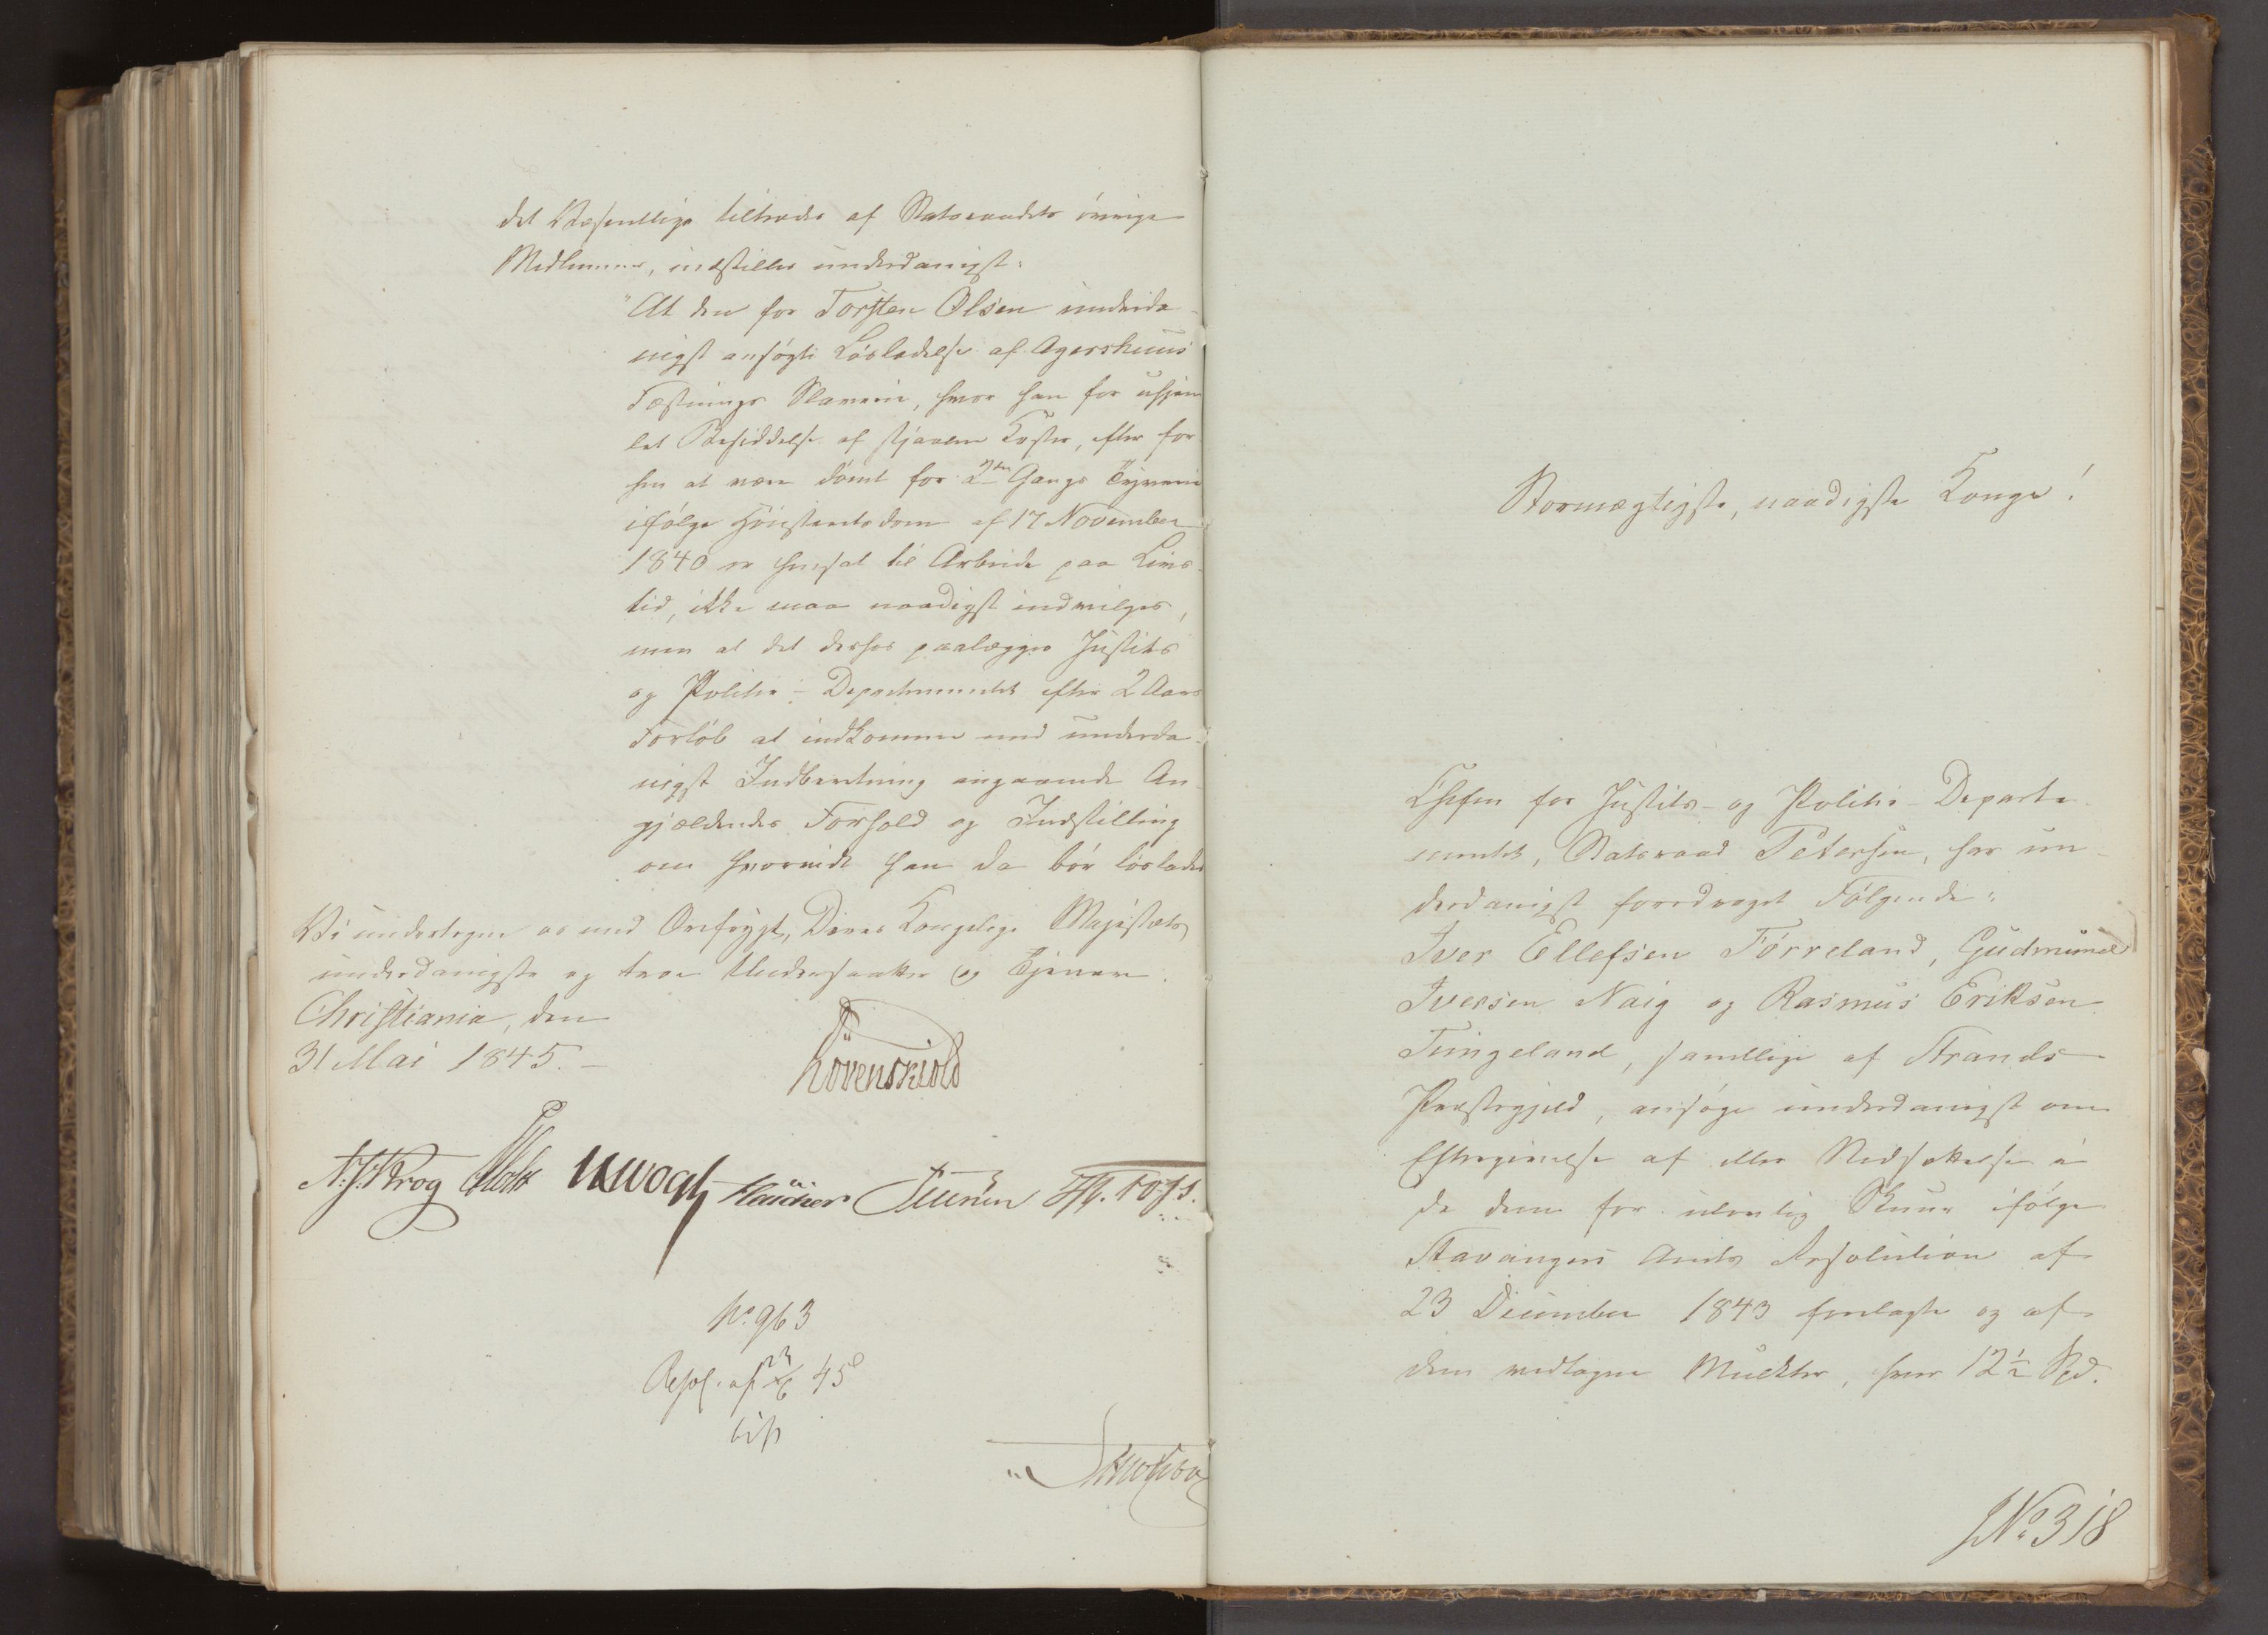 det Væsentlige tiltrædes af Statsraadets øvrige
Medlemmer, indstilles underdanigst:
"At den for Torsten Olsen underda-
nigst ansøgte Løsladelse af Agershuus
Fæstnings Slaverie, hvor han for uhjem-
let Besiddelse af stjaalne Koster, efter for-
hen at være dømt for 2den Gangs Tyverie
ifølge Høiesteretsdom af 17 November
1840 er hensat til Arbeide paa Livs-
tid, ikke maa naadigst indvilges,
men at det derhos paalægges Justits
og Politie-Departementet efter 2 Aars
Forløb at indkomme med underda-
nigst Indberetning angaaende An-
gjældendes Forhold og Indstilling
om hvorvidt han da bør løslades
Vi undertegne os med Ærefrygt, Deres Kongelige Majestæts
underdanigste og troe Undersaatter og Tjenere.
Christiania, den
31 Mai 1845.-
Løvenskiold
N. J. Krog Holst Vogt
No. 963
Resol. af 23/6 45
Stormægtigste, naadigste Konge!
Chefen for Justits- og Politie-Departe-
mentet, Statsraad Petersen, har un-
derdanigst foredraget Følgende:
Iver Ellefsen Førreland, Gudmund
Iversen Naig og Rasmus Eriksen
Tungeland, samtlige af Strands
Præstegjeld, ansøge underdanigst om
Eftergivelse af eller Nedsættelse i
de dem for ulovlig Skuur ifølge
Stavangers Amts Resolution af
23 December 1843 forelagte og af
dem vedtagne Mulkter, hver 12½ Spd.
JNo. 318